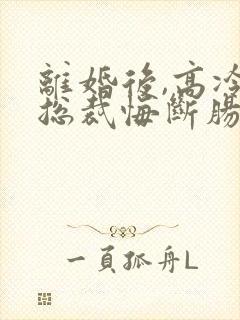 離婚後,高冷
總裁悔斷腸
一頁孤舟L